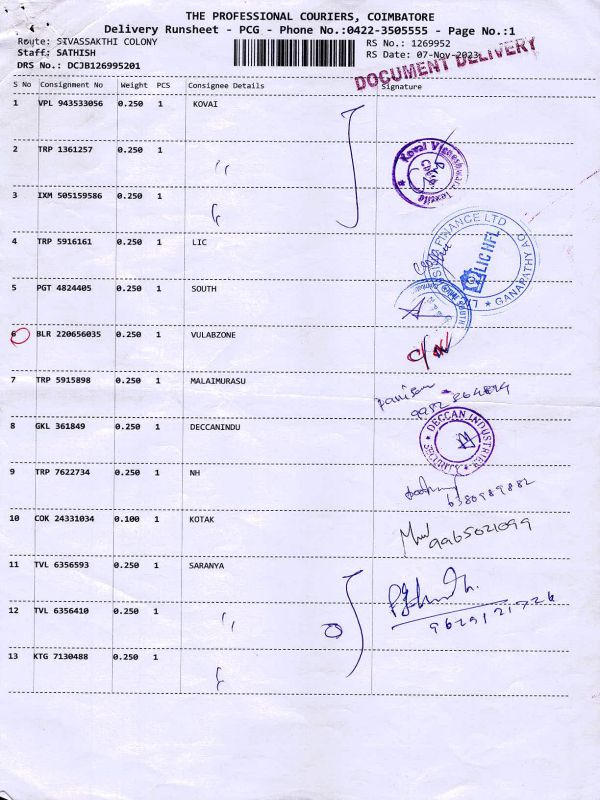 THE PROFESSIONAL COURIERS, COIMBATORE
Delivery Runsheet - PCG - Phone No.:0422-3505555 - Page No.:1
Route: SIVASSAKTHI COLONY
RS No.: 1269952
Staff: SATHISH
RS Date: 07-Nov-2023
DRS No.: DCJB126995201
DOCUMENT DELIVERY
S No Consignment No Weight PCS Consignee Details Signature
1 VPL 943533056 0.250 1 KOVAI
2 TRP 1361257 0.250 1 ''
3 IXM 505159586 0.250 1
4 TRP 5916161 0.250 1 LIC
FINANCE LTD
LIC HFL
GANAPATHY
5 PGT 4824405 0.250 1 SOUTH
6 BLR 220656035 0.250 1 VULABZONE
7 TRP 5915898 0.250 1 MALAIMURASU
8 GKL 361849 0.250 1 DECCANINDU
DECCAN INDUSTRIES
SECURITY
9 TRP 7622734 0.250 1 NH
6380989882
10 COK 24331034 0.100 1 KOTAK
9965021099
11 TVL 6356593 0.250 1 SARANYA
12 TVL 6356410 0.250 1 ''
13 KTG 7130488 0.250 1